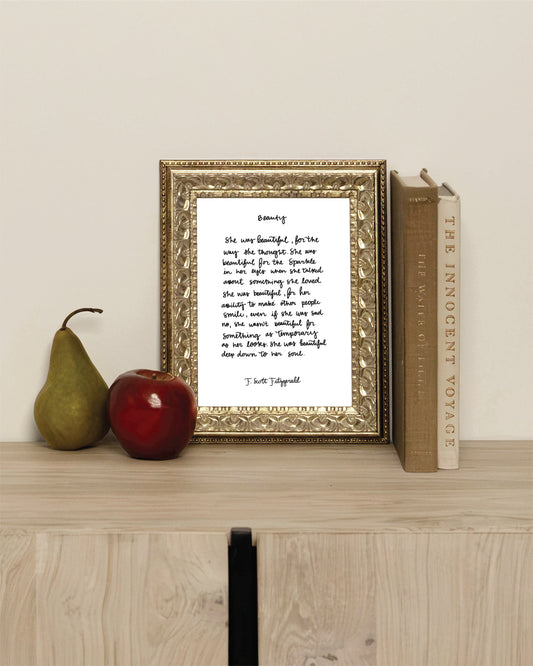 Beauty
She was beautiful, for the
way she thought. She was
beautiful for the sparkle
in her eyes when she talked
about something she loved.
She was beautiful, for her
ability to make other people
smile, even if she was sad.
no, she wasn't beautiful for
something as temporary
as her looks. She was beautiful
deep down to her soul.
F. Scott Fitzgerald
THE WATER OF
THE INNOCENT VOYAGE